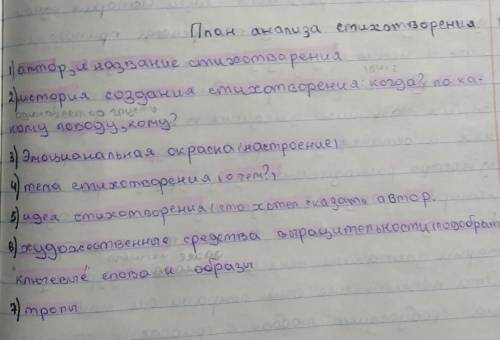 План анализа стихотворения.
1) автор, и название стихотворения
2) история создания стихотворения когда?, по ка-
кому поводу, кому?
3) Эмоцианальная окраска (настроение)
4) тема стихотворения (о чем?)
5) идея стихотворения (что хотел сказать автор.
6) художественные средства выразительности (подобрат
ключевые слова и образы
7) тропы